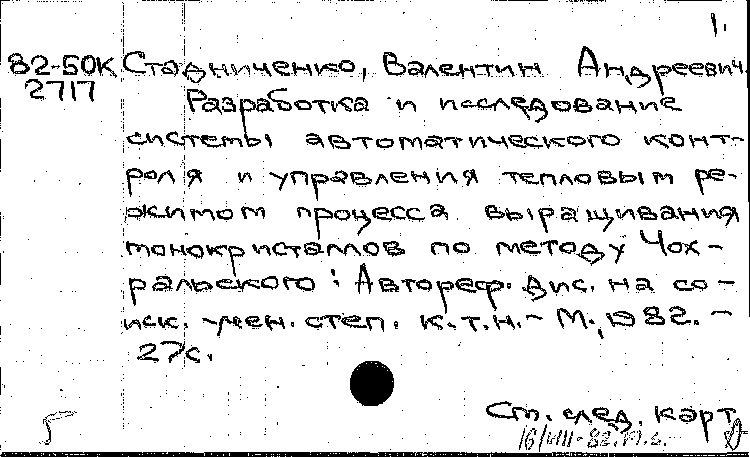 1.
82-50К Стадниченко, Валентин Андреевич.
2717 Разработка и исследование
системы автоматического конт-
роля и управления тепловым ре-
жимом процесса выращивания
монокристаллов по методу Чох-
ральского: Автореф. дис. на со-
иск. учен. степ. к.т.н. - М., 1982. -
27с.
См. след. карт.
5 16/VIII-82.